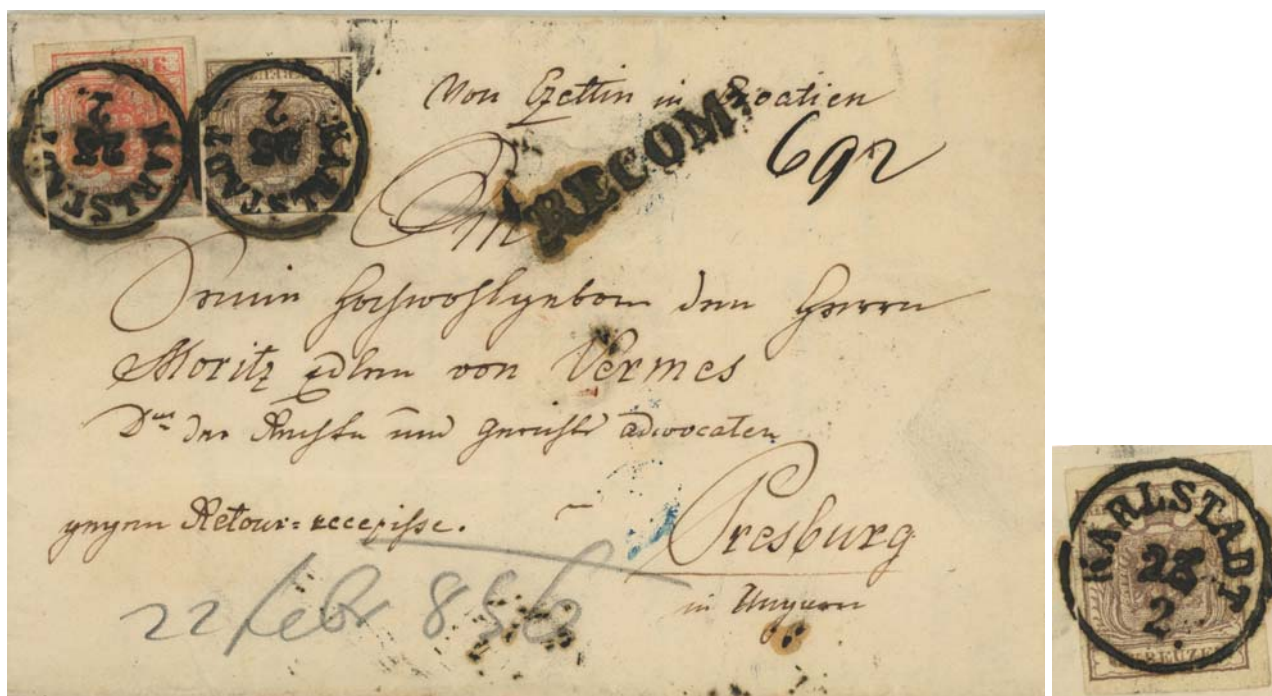 KARLSTADT
23
2.
KARLSTADT
23
2
Von Czettin in Croatien
RECOM:
692
Seiner Hochwohlgeborn dem Herrn
Moritz Edlen von Vermes
Dr der Rechte und Gerichts Advocaten
gegen Retour=recepisse.
Presburg
in Ungarn
22 febr 856
KARLSTADT
23
2.
KREUZER